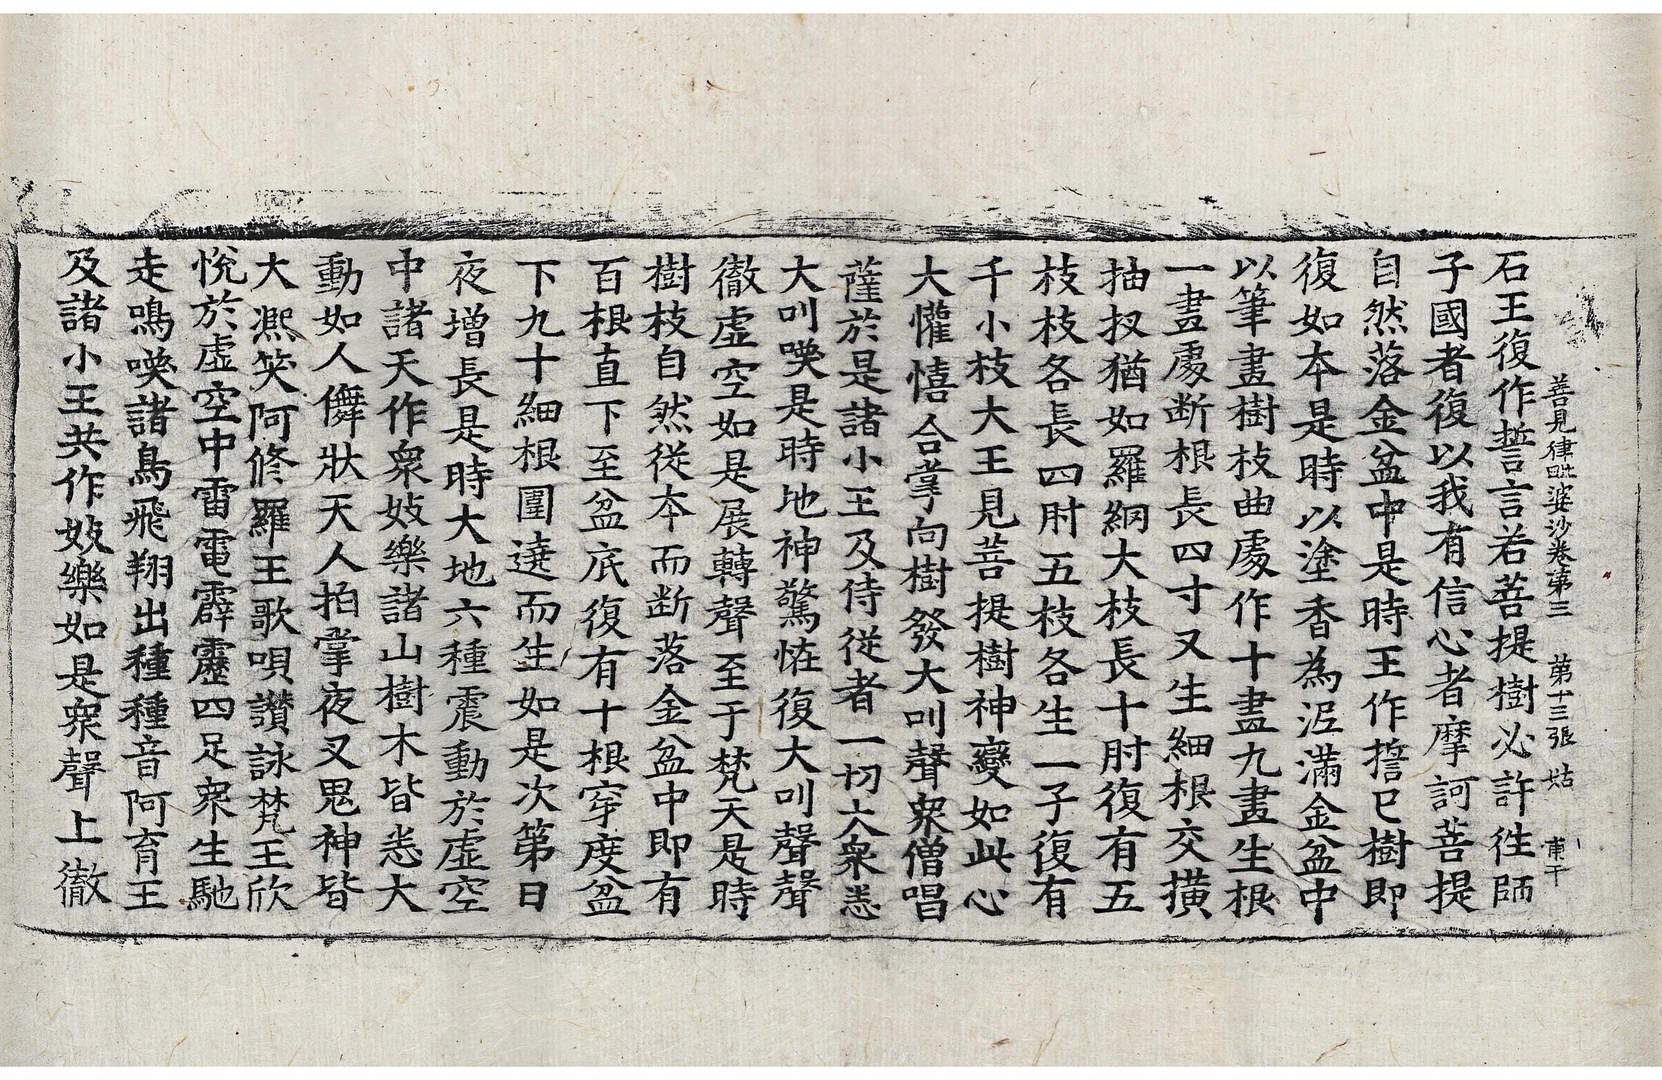 善見律毗婆沙卷第三 第十三張 姑 東千
石王復作誓言若菩提樹必許徃師
子國者復以我有信心者摩訶菩提
自然落金盆中是時王作擔已樹即
復如本是時以塗香為泥滿金盆中
以筆畫樹枝曲處作十畫九畫生根
一畫處断根長四寸又生細根交撗
抽扠猶如羅網大枝長十肘復有五
枝枝各長四肘五枝各生一子復有
千小枝大王見菩提樹神變如此心
大懽憘合掌向樹發大叫聲衆僧唱
薩於是諸小王及侍從者一切大衆悉
大叫喚是時地神驚恠復大叫聲聲
徹虛空如是展轉聲至于梵天是時
樹枝自然從本而断落金盆中即有
百根直下至盆底復有十根穿度盆
下九十細根圍遶而生如是次第日
夜增長是時大地六種震動於虛空
中諸天作衆妓樂諸山樹木皆悉大
動如人儛狀天人拍掌夜叉鬼神皆
大凞笑阿修羅王歌唄讃詠梵王欣
悅於虛空中雷電霹靂四足衆生馳
走鳴喚諸鳥飛翔出種種音阿育王
及諸小王共作妓樂如是衆聲上徹